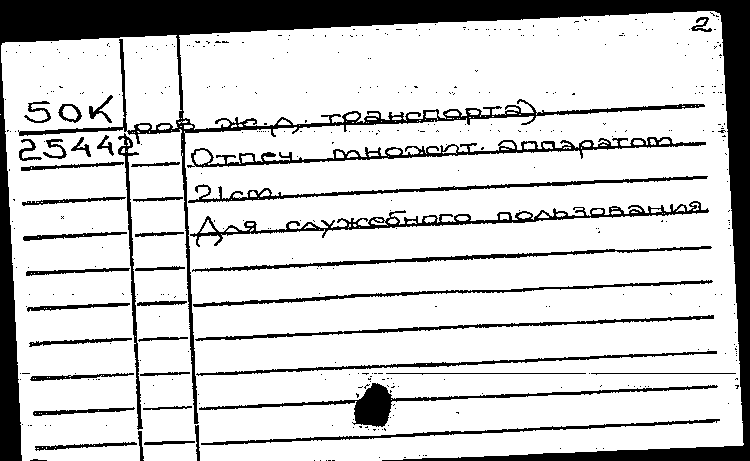 2
50К
ров ж.д. транспорта).
25442
Отпеч. множит. аппаратом
21см.
Для служебного пользования